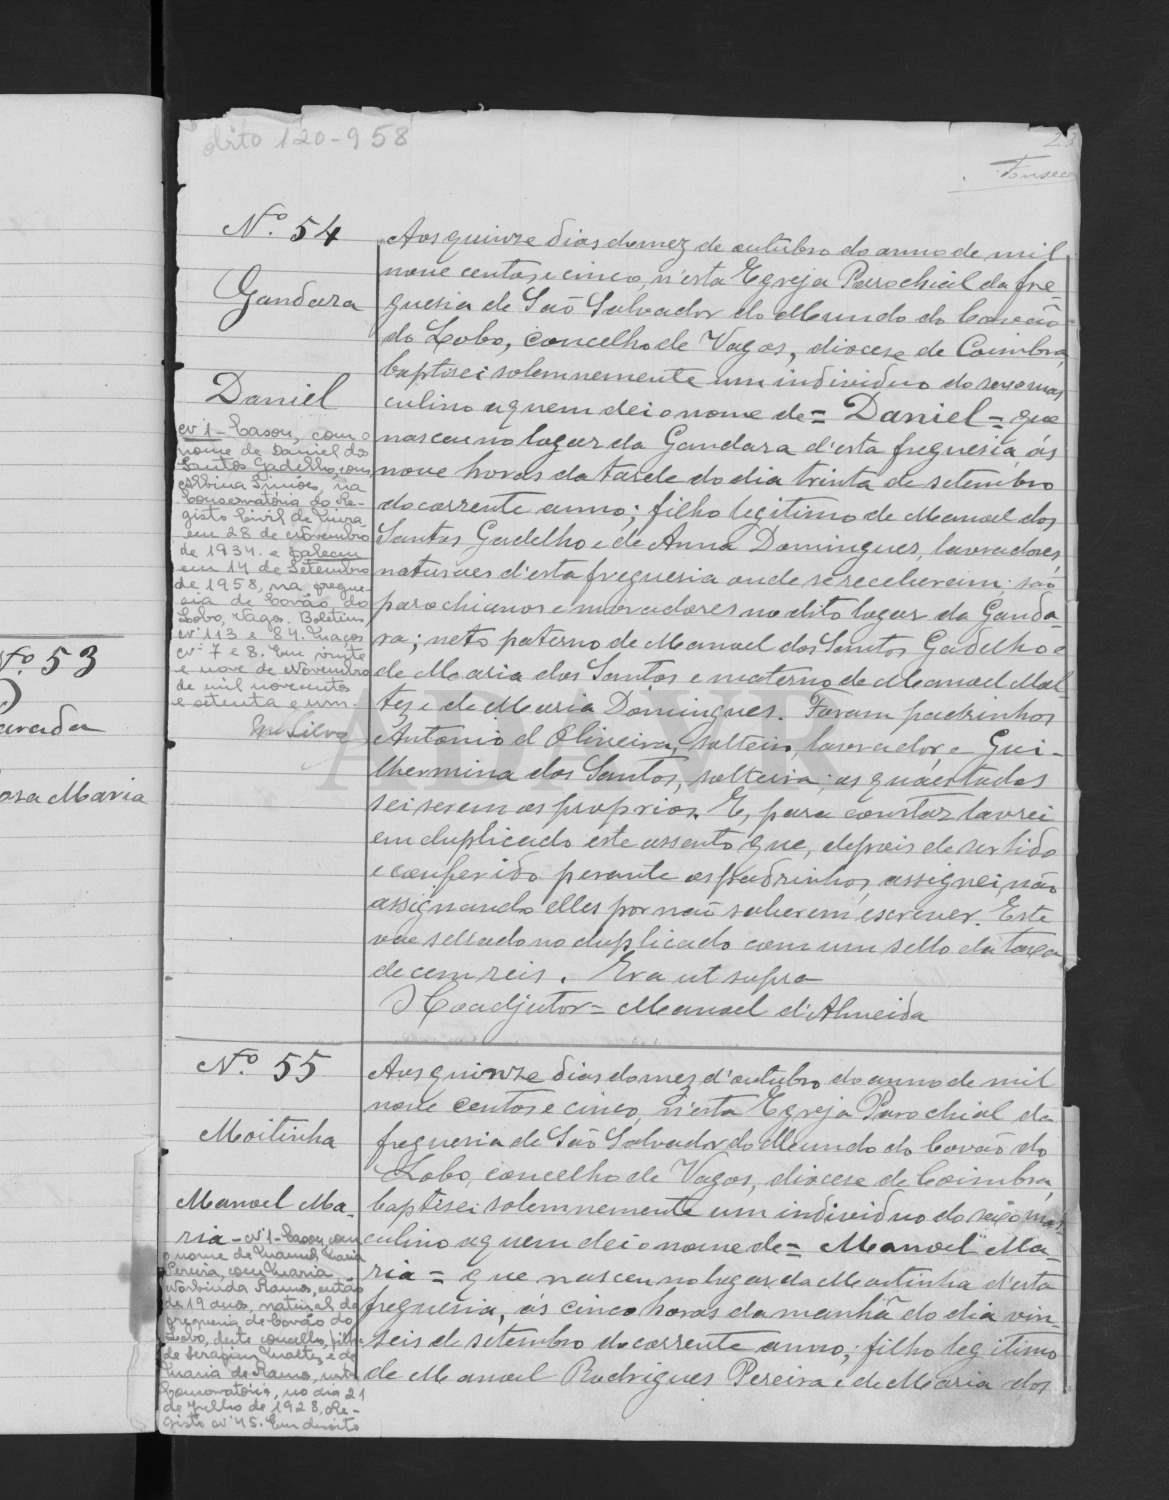 obito 120-958
23
Fonseca
Nº 54
Gandara
Daniel
Nº 1 - Casou, com o
nome de Daniel dos
Santos Gadelho, com
Albina Simões, na
Conservatória do Re-
gisto Civil de
em 28 de Novembro
de 1934. e faleceu
em 14 de Setembro
de 1958, na fregue-
sia de Covão do
Lobo, Vagos. Boletins
nº 113 e 84. Maços
nº 7 e 8. Em vinte
e nove de Novembro
de mil novecentos
e setenta e um.
Silva
Aos quinze dias do mez de outubro do anno de mil
nove centos e cinco, n'esta Egreja Parochial da fre-
guesia de São Salvador do Mundo do Covão
do Lobo, concelho de Vagos, diocese de Coimbra,
baptisei solemnemente um individuo do sexo mas
culino a quem dei o nome de = Daniel = que
nasceu no logar da Gandara d'esta freguesia, ás
nove horas da tarde do dia trinta de setembro
do corrente anno; filho legitimo de Manoel dos
Santos Gadelho e de Anna Domingues, lavradores,
naturaes d'esta freguesia onde se receberam; são
parochianos e moradores no dito logar da Ganda-
ra; neto paterno de Manoel dos Santos Gadelho e
de Maria dos Santos e materno de Manoel Mal-
tez e de Maria Domingues. Foram padrinhos
Antonio d'Oliveira, solteiro, lavrador, e Gui-
lhermina dos Santos, solteira; os quaes todos
sei serem os proprios. E, para constar lavrei
em duplicado este assento que, depois de ser lido
e conferido perante os padrinhos, assignei, não
assignando elles por não saberem escrever. Este
vae sellado no duplicado com um sello da taxa
de cem reis. Era ut supra
O Coadjutor = Manoel d'Almeida
Nº 53
Maria
Nº 55
Moitinha
Manoel Ma-
ria - Nº 1 - Casou, com
o nome de Manuel Maria
Pereira, com Maria
Ramos, então
de 19 anos, natural da
freguesia de Covão do
Lobo, deste concelho, filha
de Serafim Maltez e de
Maria de Ramos, nesta
Conservatória, no dia 21
de Julho de 1928, Re-
gisto nº 45. Em dezoito
Aos quinze dias do mez d'outubro do anno de mil
nove centos e cinco, n'esta Egreja Parochial da
freguesia de São Salvador do Mundo do Covão do
Lobo, concelho de Vagos, diocese de Coimbra,
baptisei solemnemente um individuo do sexo mas
culino a quem dei o nome de = Manoel Ma-
ria = que nasceu no logar da Moitinha d'esta
freguesia, ás cinco horas da manhã do dia vin-
seis de setembro do corrente anno; filho legitimo
de Manoel Rodrigues Pereira e de Maria dos
ADAVR